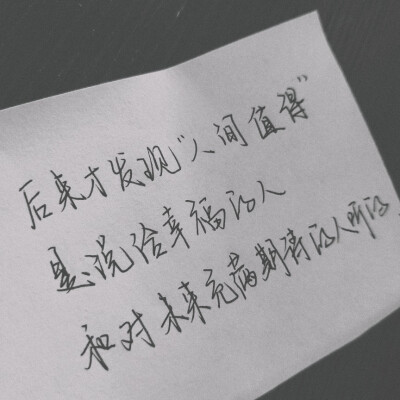 后来才发现“人间值得”
是说给幸福的人
和对未来充满期待的人听的.